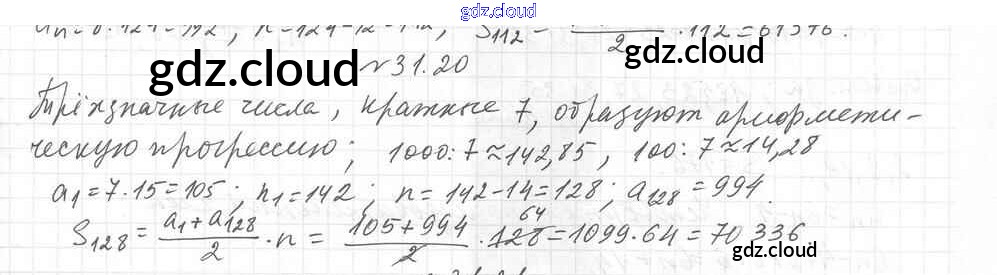 gdz.cloud
aₙ=8·124=992, n=124-12=112, S₁₁₂= /2 ·112=61376.
gdz.cloud
gdz.cloud
№31.20
Трёхзначные числа, кратные 7, образуют арифмети-
ческую прогрессию; 1000:7≈142,85, 100:7≈14,28
a₁=7·15=105; n₁=142; n=142-14=128; a₁₂₈=994.
S₁₂₈= (a₁+a₁₂₈)/2 ·n= (105+994)/2 ·128 64 =1099·64=70336
gdz.cloud
gdz.cloud